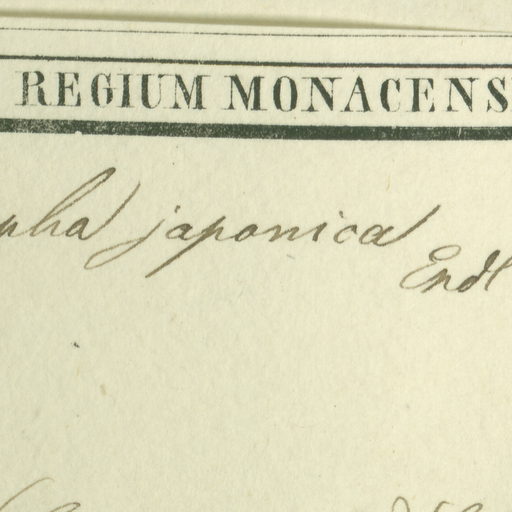 REGIUM MONACENS
japonica
Endl